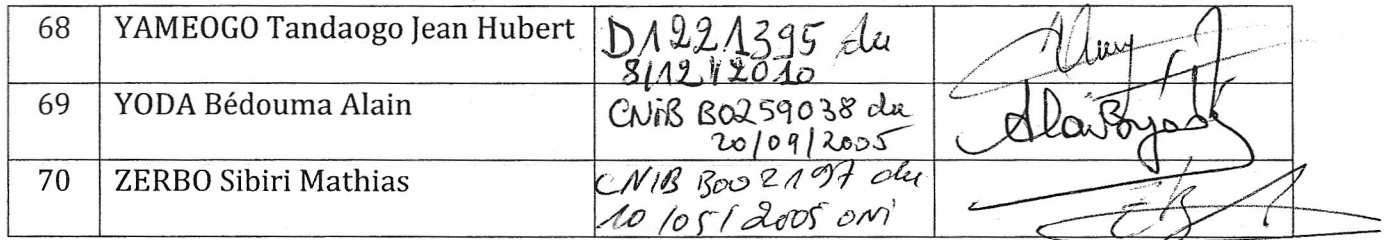 68 YAMEOGO Tandaogo Jean Hubert D1221395 du
8/12/2010
69 YODA Bédouma Alain CNiB B0259038 du
20/09/2005
70 ZERBO Sibiri Mathias CNIB B002197 du
10/05/2005 ONI